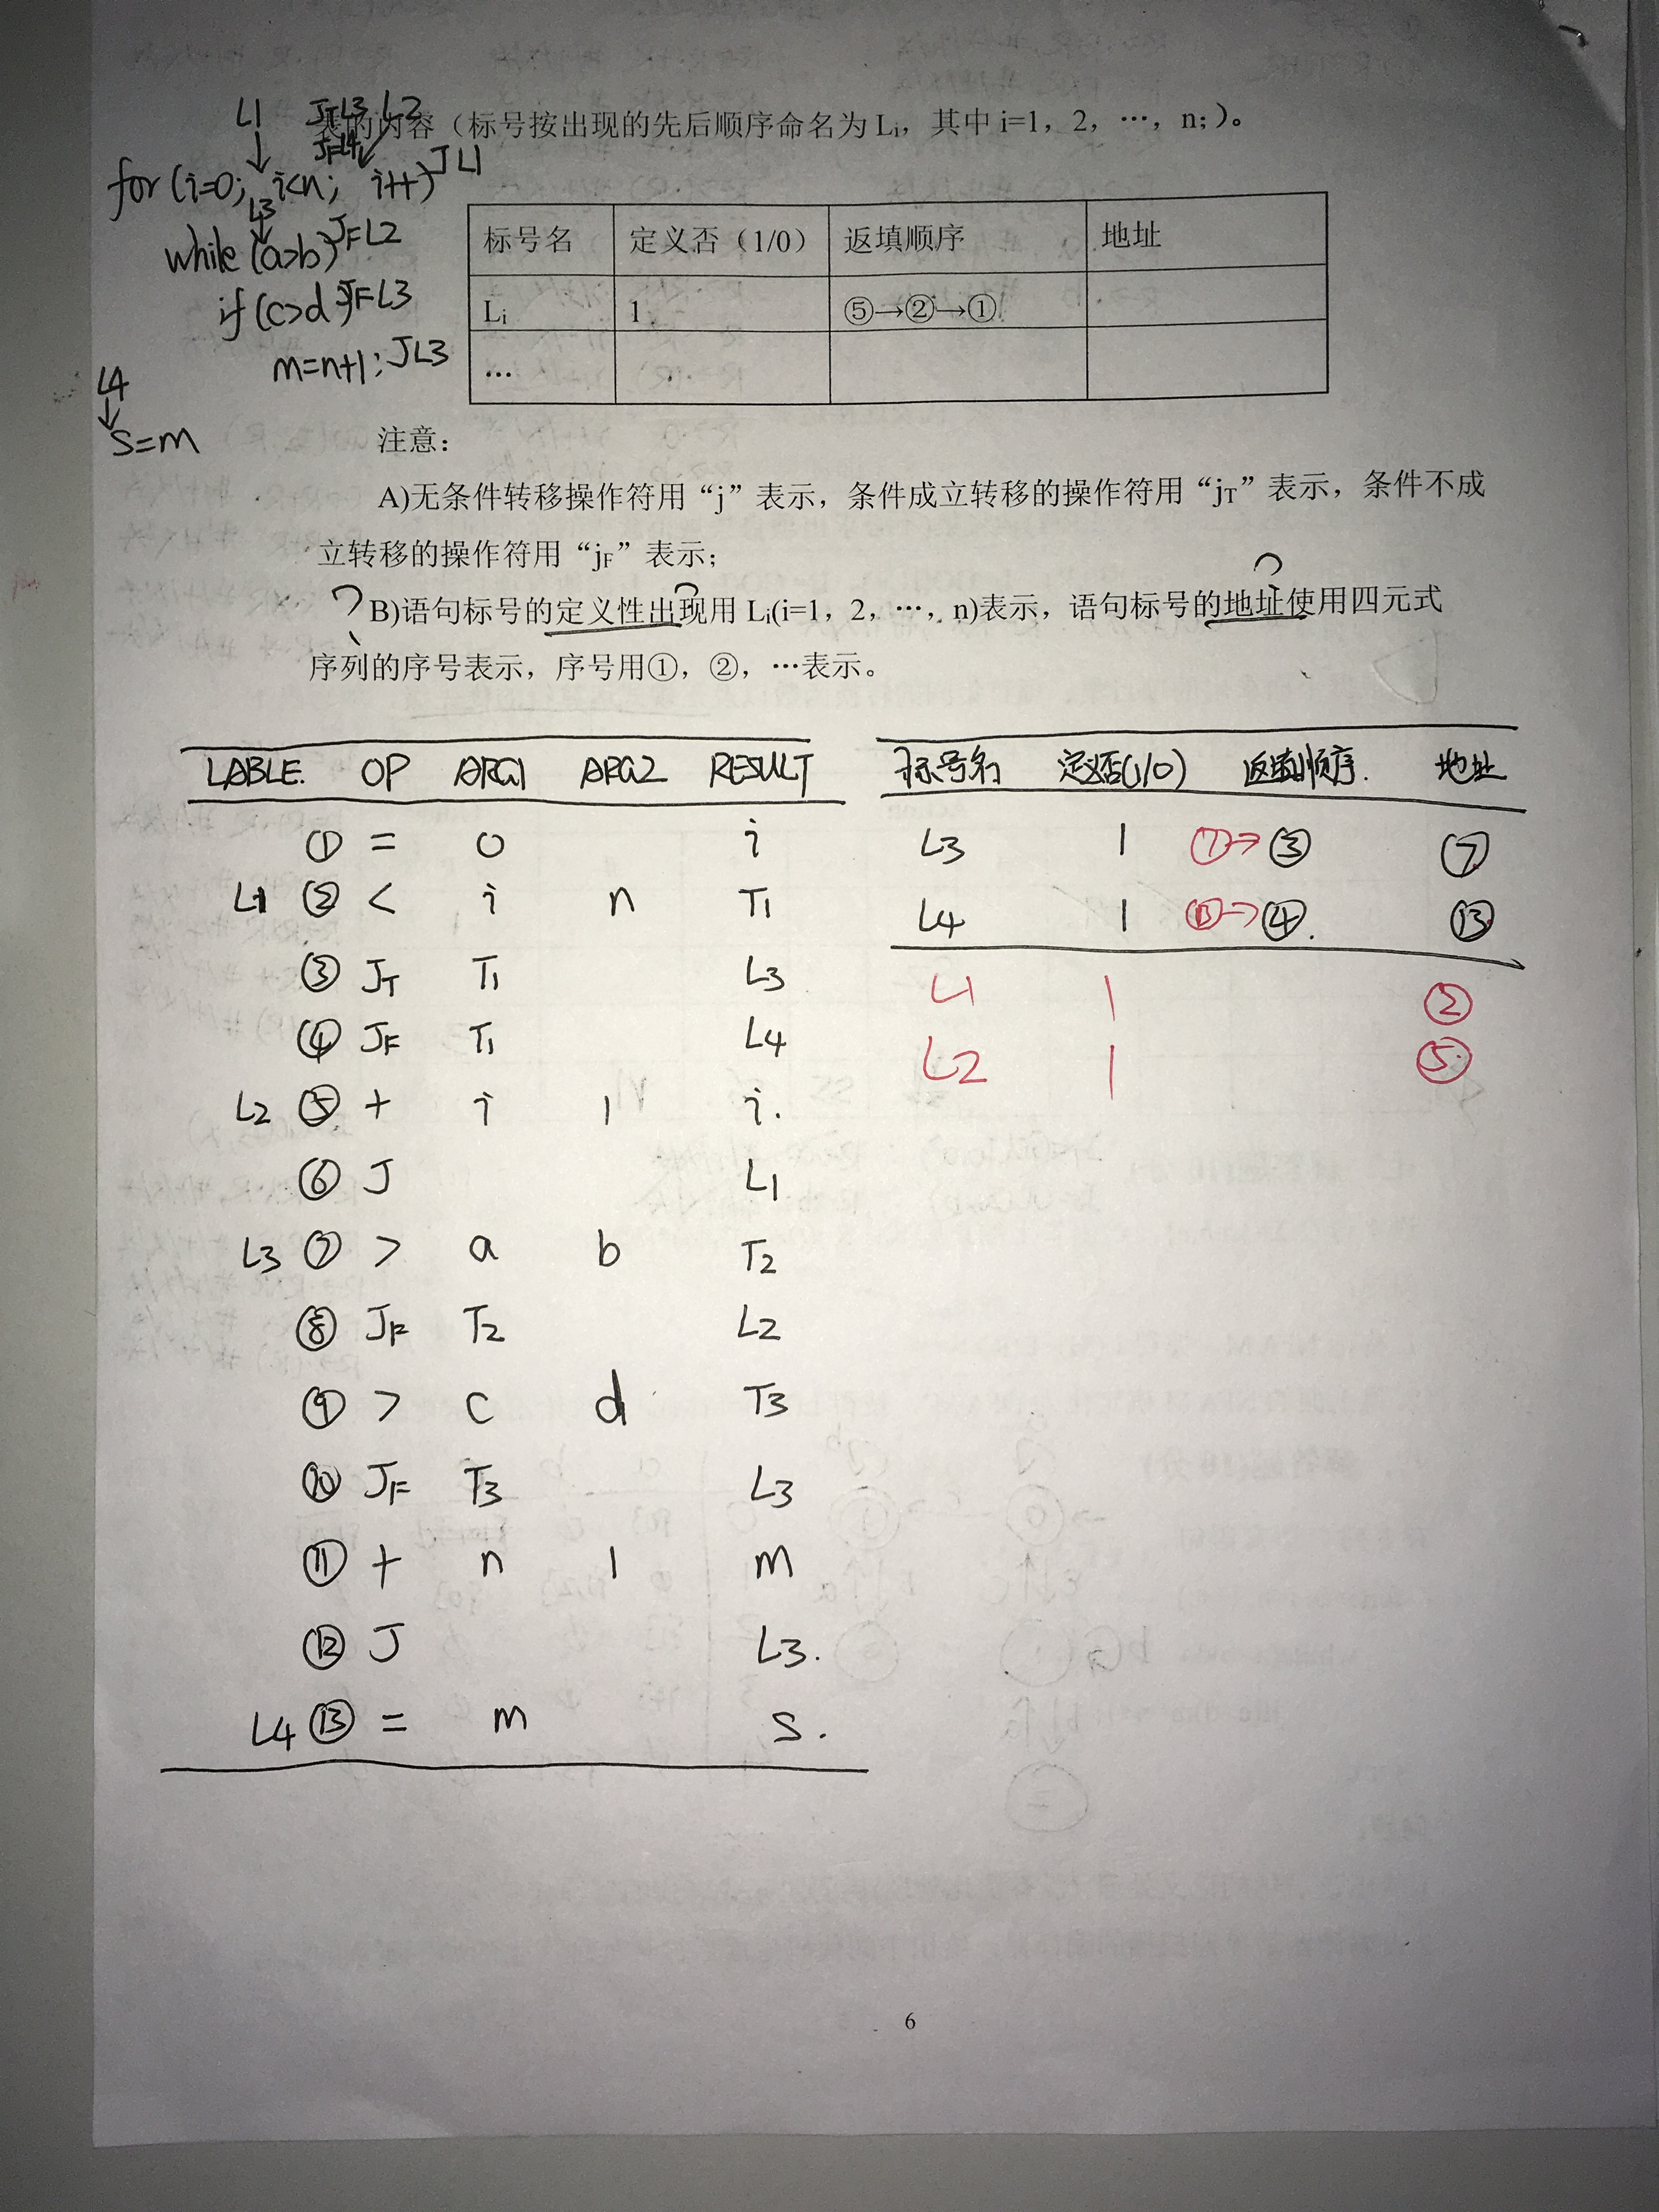 L1 JTL3 L2
JFL4
表的内容（标号按出现的先后顺序命名为Li，其中i=1，2，…，n；）。
for (i=0; i<n; i++) JL1
L3
while (a>b) JFL2
if (c>d) JFL3
m=n+1; JL3
L4
S=m
标号名 定义否（1/0） 返填顺序 地址
Li 1 ⑤→②→①
…
注意：
A)无条件转移操作符用“j”表示，条件成立转移的操作符用“jT”表示，条件不成
立转移的操作符用“jF”表示；
? B)语句标号的定义性出现用Li(i=1，2，…，n)表示，语句标号的地址使用四元式
序列的序号表示，序号用①，②，…表示。
LABLE. OP ARG1 ARG2 RESULT
① = 0 i
L1 ② < i n T1
③ JT T1 L3
④ JF T1 L4
L2 ⑤ + i 1 i.
⑥ J L1
L3 ⑦ > a b T2
⑧ JF T2 L2
⑨ > c d T3
⑩ JF T3 L3
⑪ + n 1 m
⑫ J L3.
L4 ⑬ = m S.
标号名 定义否(1/0) 返填顺序. 地址
L3 1 ⑦→③ ⑦
L4 1 ⑬→④. ⑬
L1 1 ②
L2 1 ⑤
6